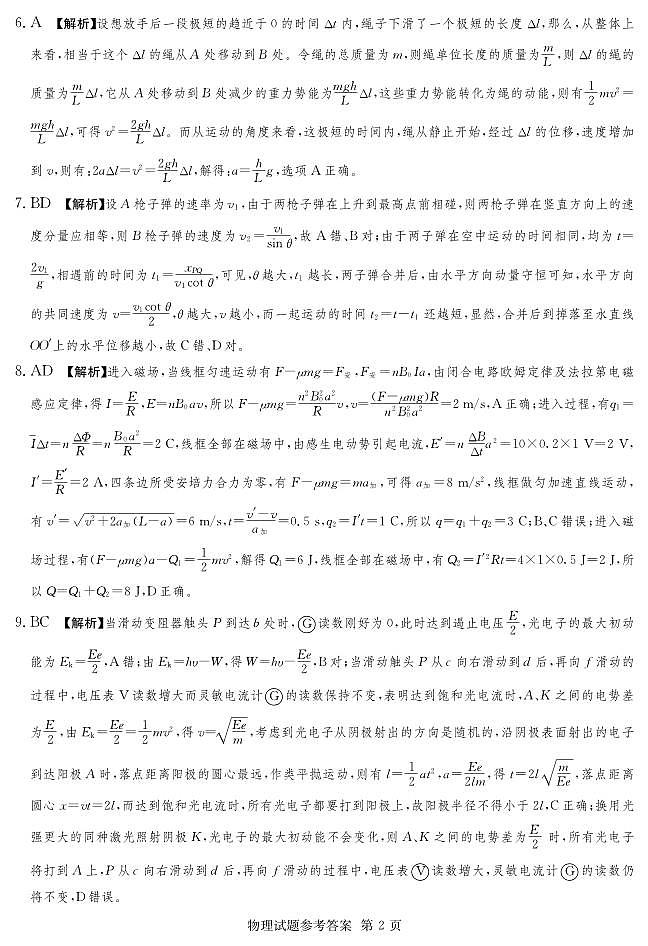 6. A 【解析】设想放手后一段极短的趋近于 0 的时间 Δt 内,绳子下滑了一个极短的长度 Δl,那么,从整体上
来看,相当于这个 Δl 的绳从 A 处移动到 B 处。令绳的总质量为 m,则绳单位长度的质量为 m/L,则 Δl 的绳的
质量为 m/L Δl,它从 A 处移动到 B 处减少的重力势能为 mgh/L Δl,这些重力势能转化为绳的动能,则有 1/2 mv²=
mgh/L Δl,可得 v²=2gh/L Δl。而从运动的角度来看,这极短的时间内,绳从静止开始,经过 Δl 的位移,速度增加
到 v,则有:2aΔl=v²=2gh/L Δl,解得:a=h/L g,选项 A 正确。
7. BD 【解析】设 A 枪子弹的速率为 v₁,由于两枪子弹在上升到最高点前相碰,则两枪子弹在竖直方向上的速
度分量应相等,则 B 枪子弹的速度为 v₂=v₁/sin θ,故 A 错、B 对;由于两子弹在空中运动的时间相同,均为 t=
2v₁/g,相遇前的时间为 t₁=x_PQ/v₁cot θ,可见,θ 越大,t₁ 越长,两子弹合并后,由水平方向动量守恒可知,水平方向
的共同速度为 v=v₁cot θ/2,θ 越大,v 越小,而一起运动的时间 t₂=t-t₁ 还越短,显然,合并后到掉落至水直线
OO′上的水平位移越小,故 C 错、D 对。
8. AD 【解析】进入磁场,当线框匀速运动有 F-μmg=F安,F安=nB₀Ia,由闭合电路欧姆定律及法拉第电磁
感应定律,得 I=E/R,E=nB₀av,所以 F-μmg=n²B₀²a²/R v,v=(F-μmg)R/n²B₀²a²=2 m/s,A 正确;进入过程,有q₁=
I̅Δt=n ΔΦ/R=n B₀a²/R=2 C,线框全部在磁场中,由感生电动势引起电流,E′=n ΔB/Δt a²=10×0.2×1 V=2 V,
I′=E′/R=2 A,四条边所受安培力合力为零,有 F-μmg=ma加,可得 a加=8 m/s²,线框做匀加速直线运动,
有 v′=√(v²+2a加(L-a))=6 m/s,t=(v′-v)/a加=0.5 s,q₂=I′t=1 C,所以 q=q₁+q₂=3 C;B、C 错误;进入磁
场过程,有(F-μmg)a-Q₁=1/2 mv²,解得 Q₁=6 J,线框全部在磁场中,有 Q₂=I′²Rt=4×1×0.5 J=2 J,所
以 Q=Q₁+Q₂=8 J,D 正确。
9. BC 【解析】当滑动变阻器触头 P 到达 b 处时,Ⓖ读数刚好为 0,此时达到遏止电压 E/2,光电子的最大初动
能为 Eₖ=Ee/2,A 错;由 Eₖ=hν-W,得 W=hν-Ee/2,B 对;当滑动触头 P 从 c 向右滑动到 d 后,再向 f 滑动的
过程中,电压表 V 读数增大而灵敏电流计Ⓖ的读数保持不变,表明达到饱和光电流时,A、K 之间的电势差
为 E/2,由 Eₖ=Ee/2=1/2 mv²,得 v=√(Ee/m),考虑到光电子从阴极射出的方向是随机的,沿阴极表面射出的电子
到达阳极 A 时,落点距离阳极的圆心最远,作类平抛运动,则有 l=1/2 at²,a=Ee/2lm,得 t=2l√(m/Ee),落点距离
圆心 x=vt=2l,而达到饱和光电流时,所有光电子都要打到阳极上,故阳极半径不得小于 2l,C 正确;换用光
强更大的同种激光照射阴极 K,光电子的最大初动能不会变化,则 A、K 之间的电势差为 E/2 时,所有光电子
将打到 A 上,P 从 c 向右滑动到 d 后,再向 f 滑动的过程中,电压表Ⓥ读数增大,灵敏电流计Ⓖ的读数仍
将不变,D 错误。
物理试题参考答案 第 2 页